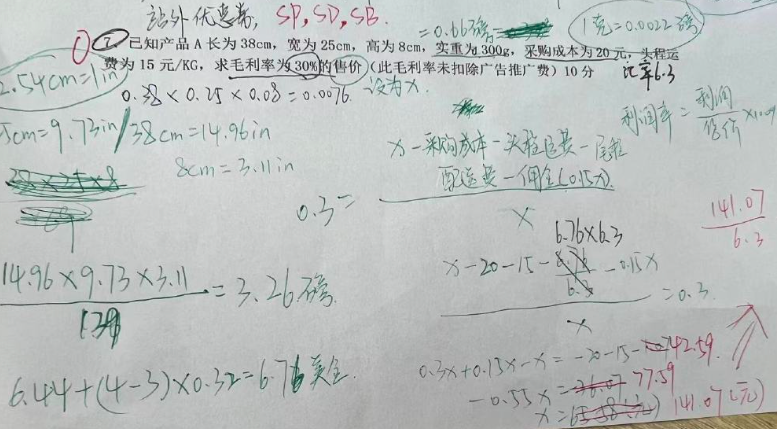 站外优惠卷, SP, SD, SB.
=0.66磅=
1克=0.0022磅
7. 已知产品 A 长为 38cm，宽为 25cm，高为 8cm，实重为 300g，采购成本为 20 元，头程运
费为 15 元/KG，求毛利率为 30%的售价（此毛利率未扣除广告推广费）10 分
比率6.3
2.54cm=1in
0.38×0.25×0.08=0.0076
设为x.
5cm=9.73in/38cm=14.96in
8cm=3.11in
利润率=利润/售价×100
0.3=
x-采购成本-头程运费-尾程
配送费-佣金(0.15x)
x
141.07
6.3
6.76×6.3
x-20-15- -0.15x
=0.3
x
14.96×9.73×3.11
139
=3.26磅
0.3x+0.15x-x=-20-15-42.59
-0.55x= 77.59
6.44+(4-3)×0.32=6.76美金.
x= 141.07(元)